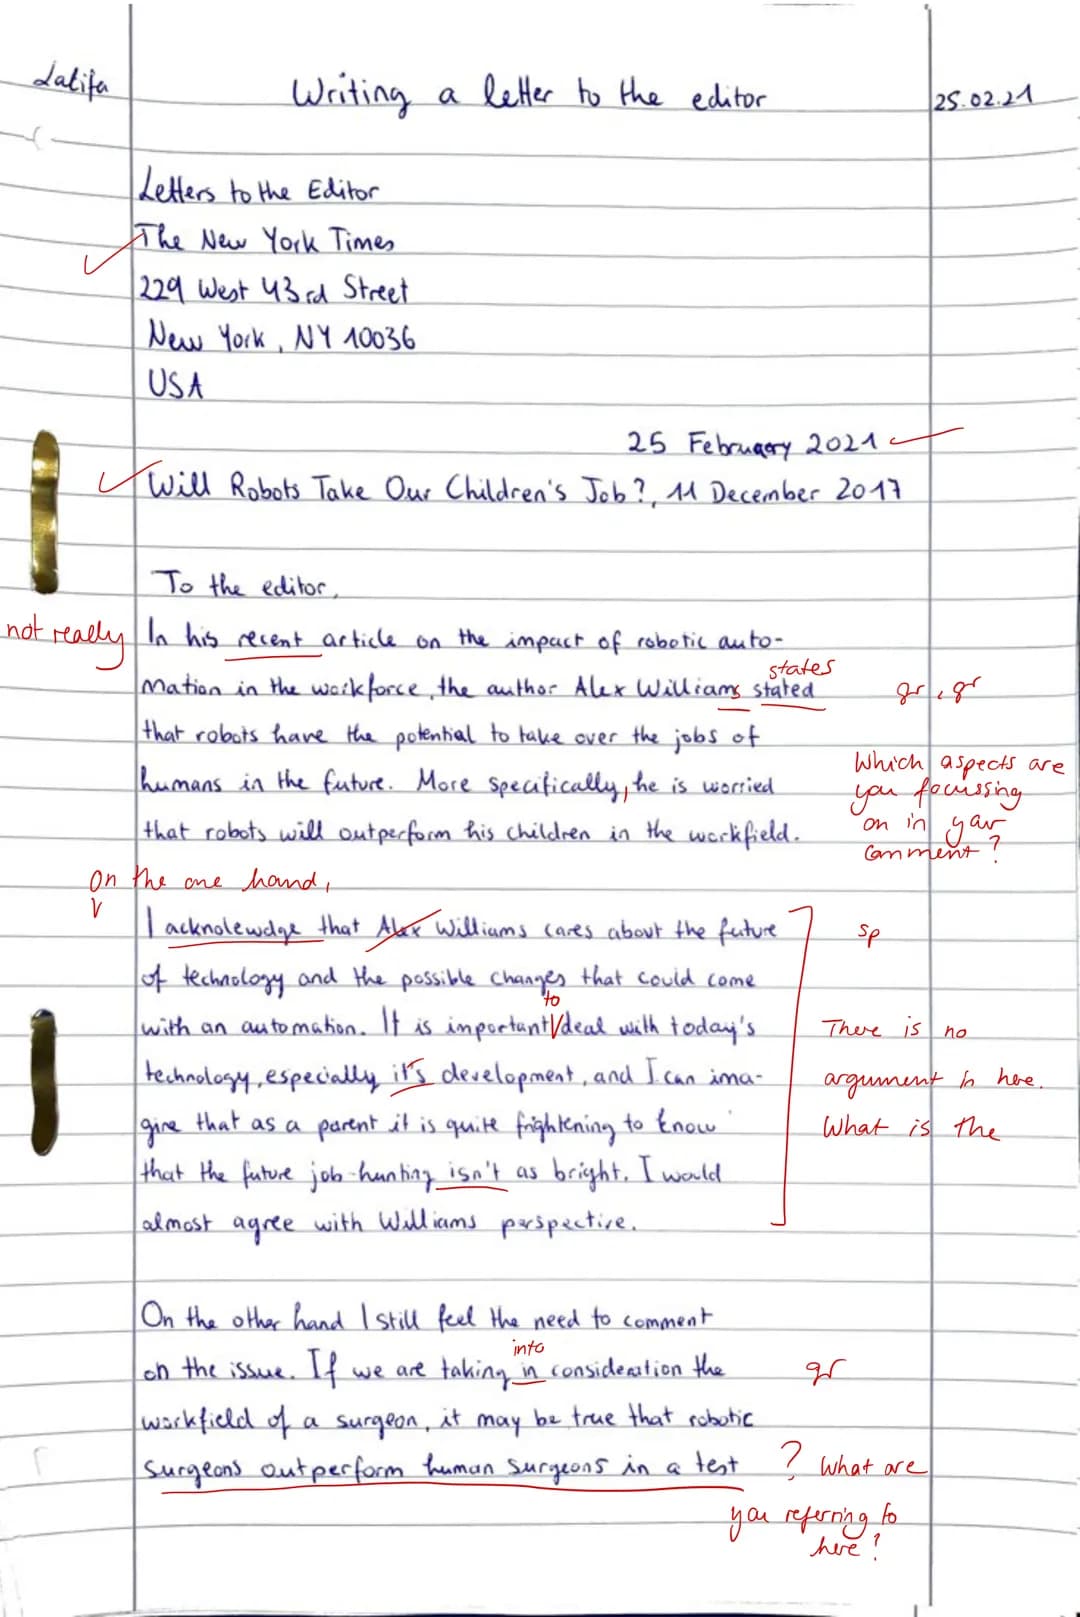 Latifa
Writing a letter to the editor
25.02.21
Letters to the Editor
The New York Times
229 West 43rd Street
New York, NY 10036
USA
25 February 2021
Will Robots Take Our Children's Job?, 11 December 2017
To the editor,
not really
In his recent article on the impact of robotic auto-
states
mation in the workforce, the author Alex Williams stated
gr, gr
that robots have the potential to take over the jobs of
humans in the future. More specifically, he is worried
that robots will outperform his children in the workfield.
Which aspects are
you focussing
on in your
comment?
On the one hand,
I acknolewdge that Alex Williams cares about the future
sp
of technology and the possible changes that could come
to
with an automation. It is important deal with today's
There is no
technology, especially it's development, and I can ima-
argument in here.
gine that as a parent it is quite frightening to know
What is the
that the future job-hunting isn't as bright. I would
almost agree with Williams perspective.
On the other hand I still feel the need to comment
into
on the issue. If we are taking in consideration the
gr
workfield of a surgeon, it may be true that robotic
surgeons outperform human surgeons in a test
? What are
you referring to
here?